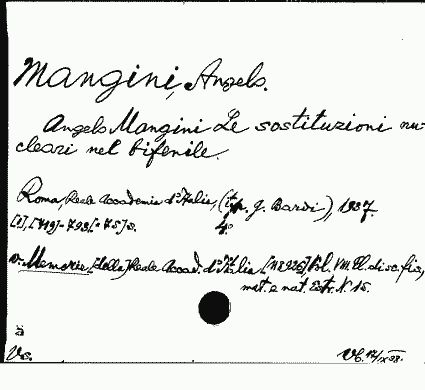 Mangini, Angelo.
Angelo Mangini Le sostituzioni nu-
cleari nel bifenile.
Roma, Reale Accademia d'Italia, (tip. G. Bardi), 1937.
[1], [719]-793, [=75] s. 4°
v. Memorie [della] Reale Accad. d'Italia Vol. VIII. Cl. di sc. fis,
mat. e nat. Estr. N. 15.